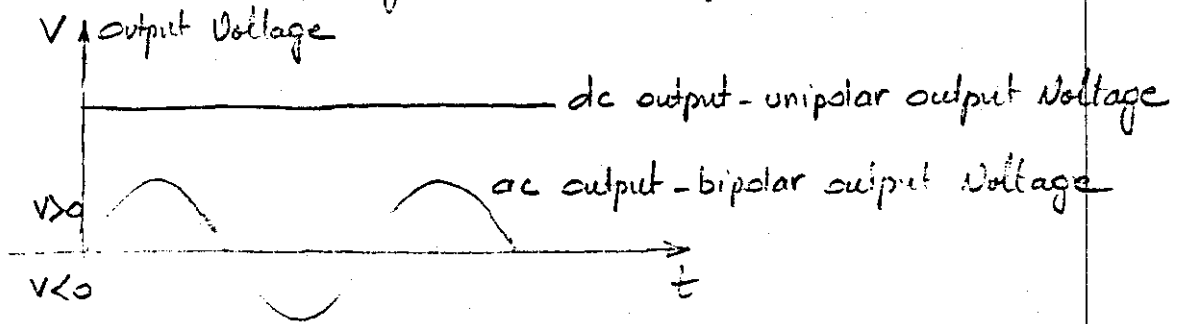 V output Voltage
dc output - unipolar output Voltage
ac output - bipolar output Voltage
V>0
V<0
t